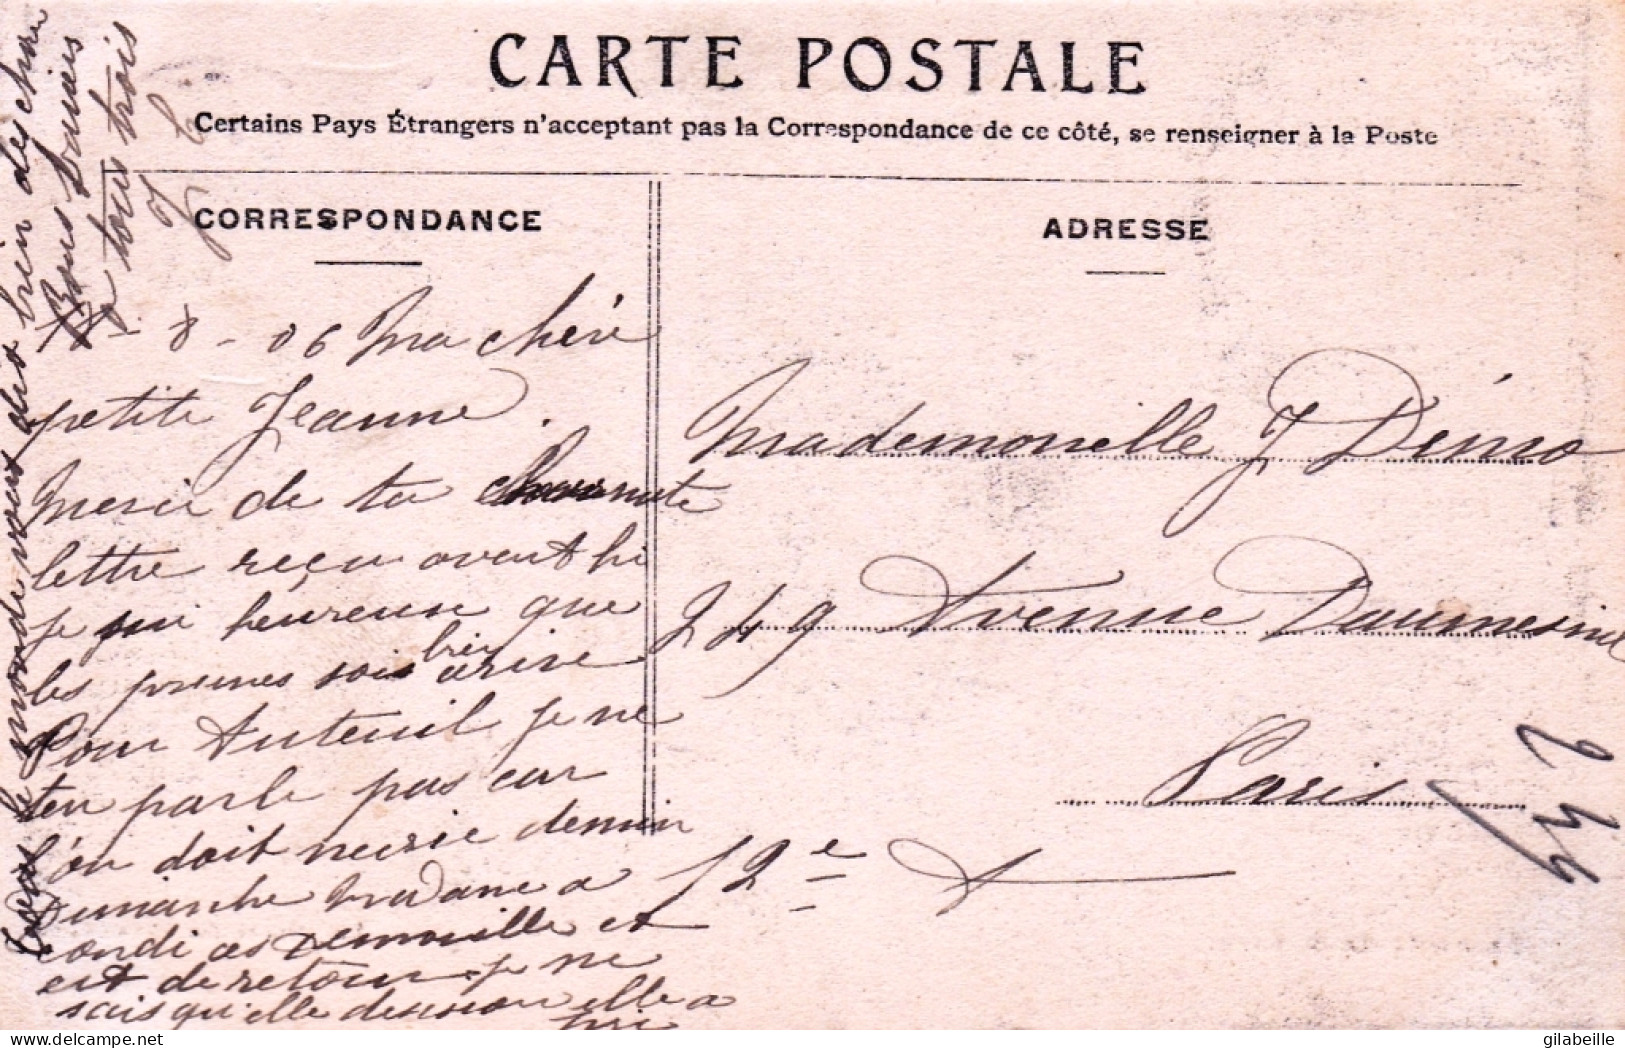 CARTE POSTALE
Certains Pays Étrangers n'acceptant pas la Correspondance de ce côté, se renseigner à la Poste
CORRESPONDANCE
ADRESSE
18 - 8 - 06 Ma chère
petite Jeanne.
Merci de ta charmante
lettre reçu avant hi
je suis heureuse que
les prunes sois bien arivé
Pour Auteuil je ne
ten parle pas car
l'on doit
Dimanche Madame a
condi ces Demoiselle et
est de retour je ne
sais qu'elle elle a
pri
tout le monde vous dis bien des chose
Bons baisers
a tous trois
J
Mademoiselle J Denizo
249 Avenue Daumesnil
Paris
12e
gilabeille
delcampe.net